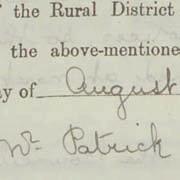 f the Rural District
the above-mentione
ay of August
Wm Patrick